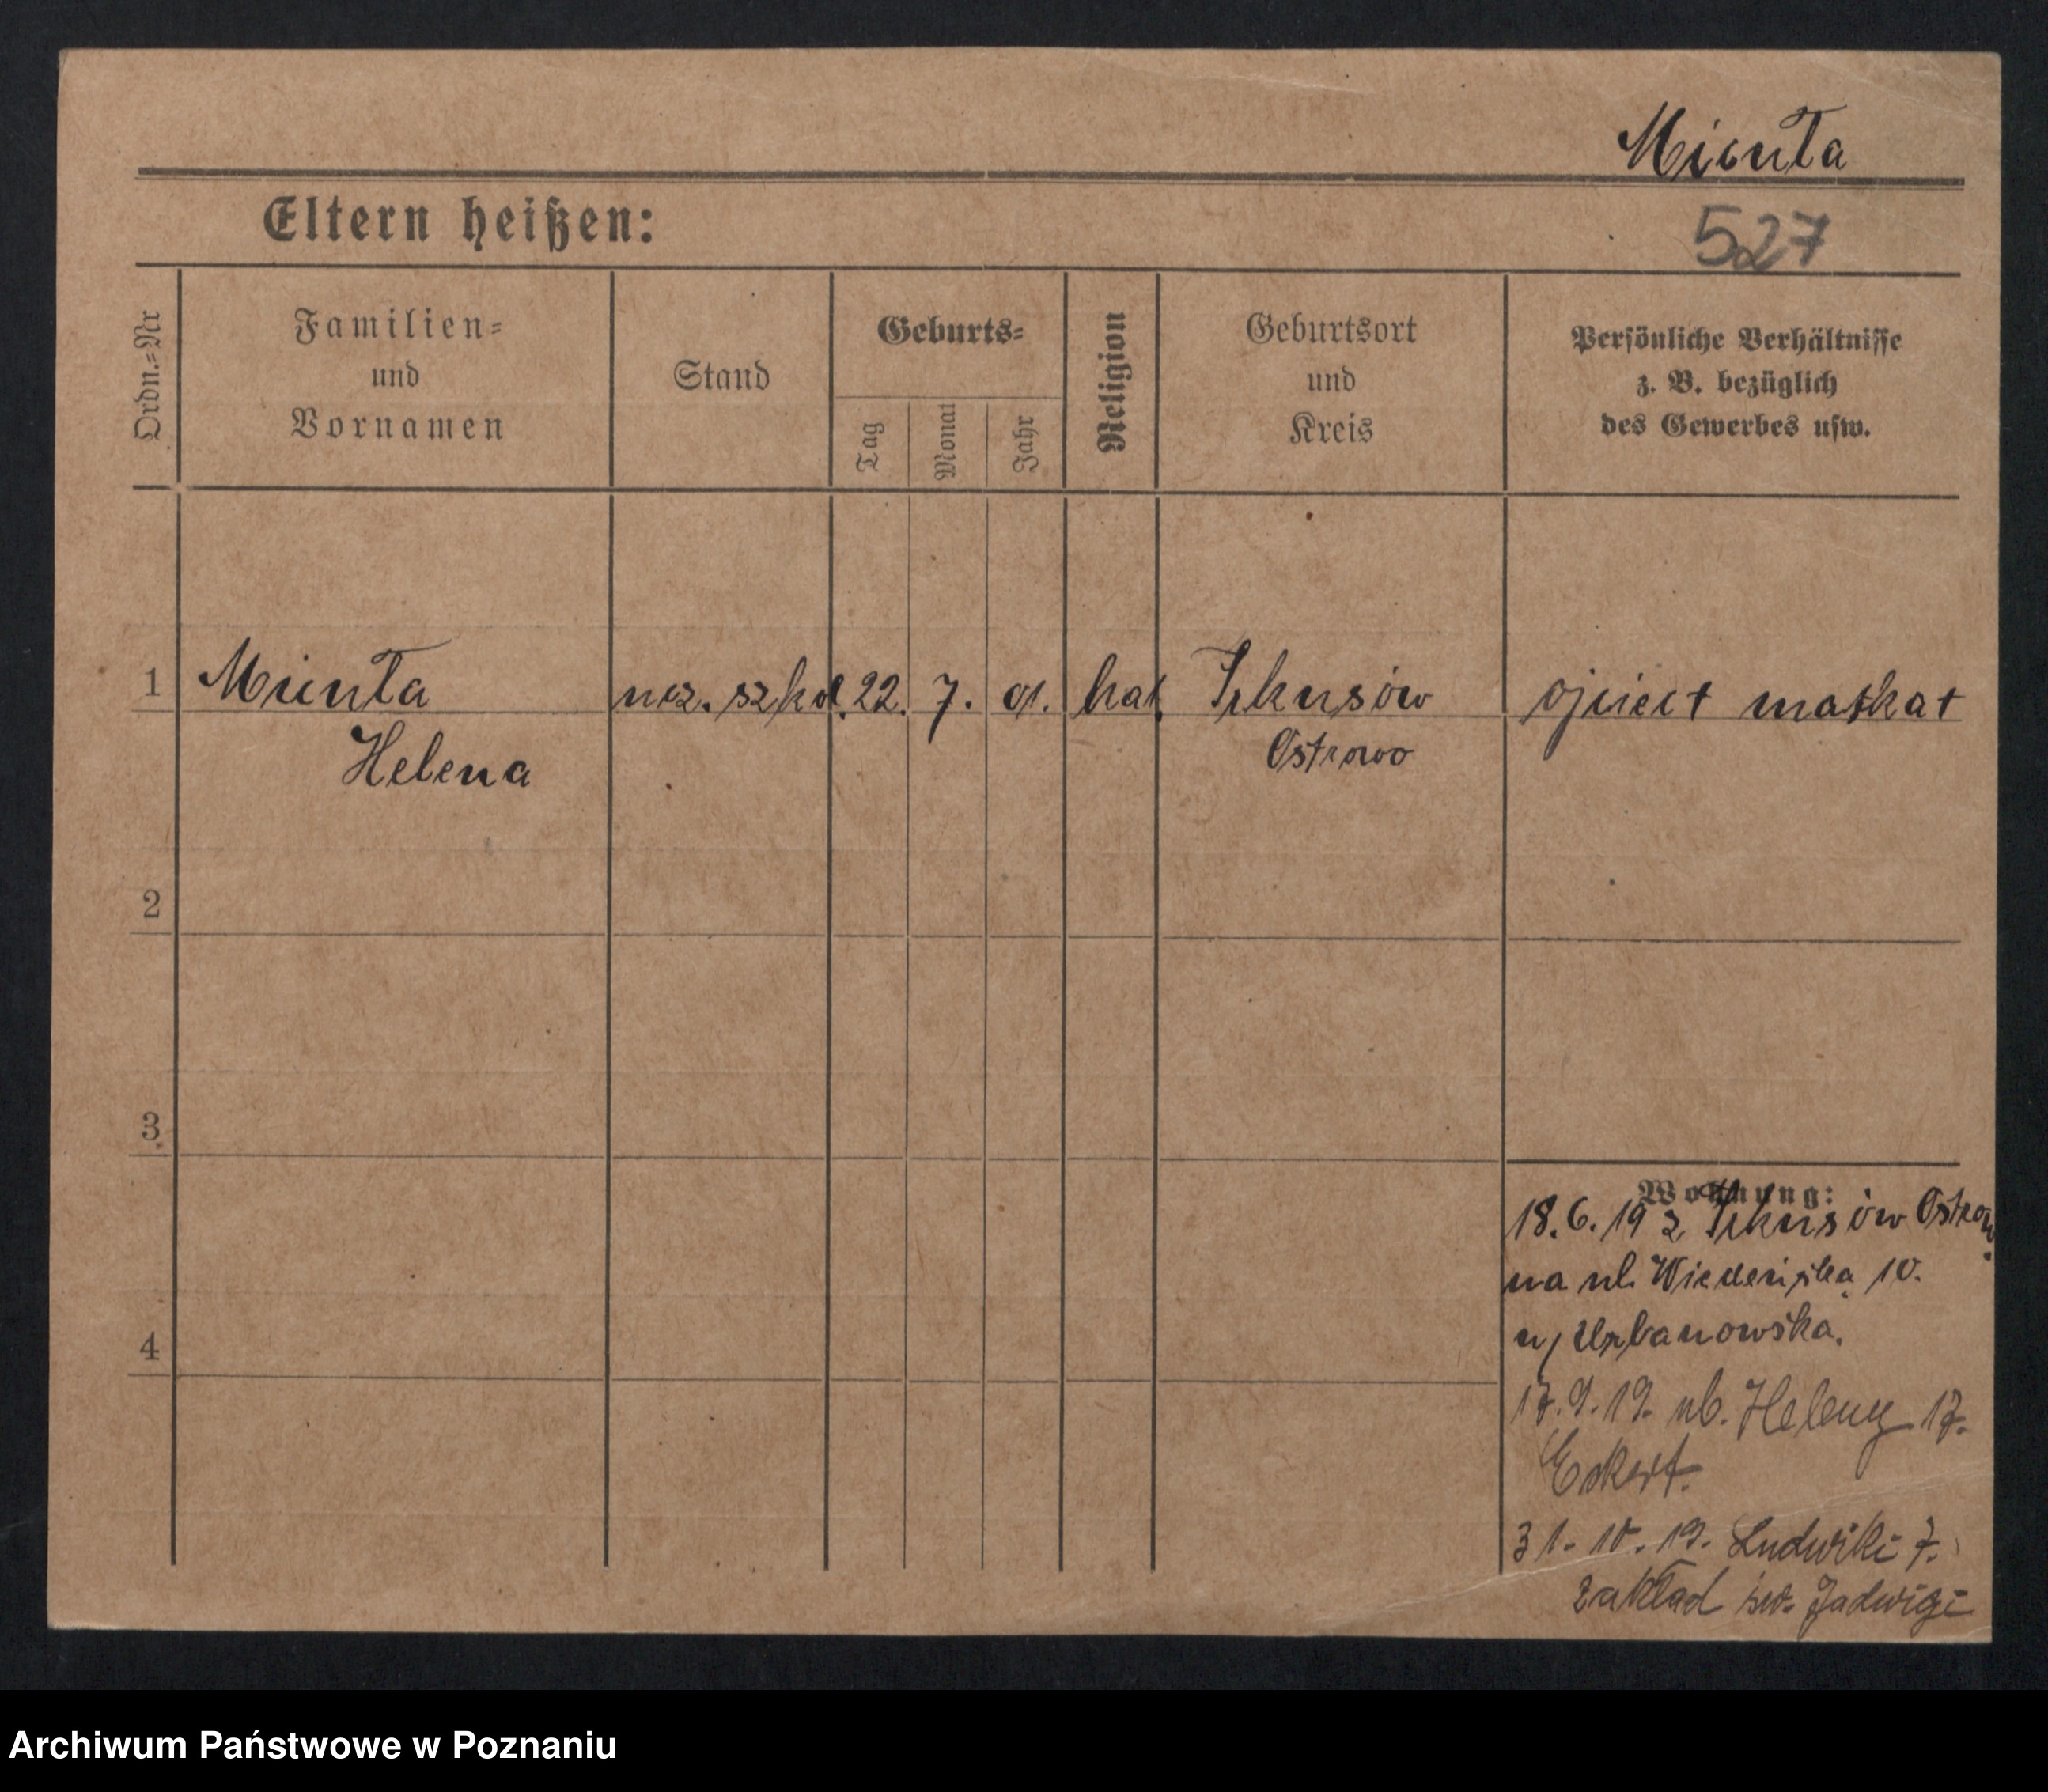 Mienta
527
Eltern heißen:
Ordn.=Nr
Familien=
und
Vornamen
Stand
Geburts=
Tag
Monat
Jahr
Religion
Geburtsort
und
Kreis
Persönliche Verhältnisse
z. B. bezüglich
des Gewerbes usw.
1 Mienta ucz. szkol. 22. 7. 01. kat. ojciec + matka +
Helena Ostrowo
2
3
Wohnung:
18. 6. 19 z Ostrow.
na ul. Wiedeńska 10.
u/ Urbanowska.
4
17. 9. 19. ul. Heleny 17.
Eckert.
31. 10. 19. Ludwiki 7.
zakład św. Jadwigi
Archiwum Państwowe w Poznaniu